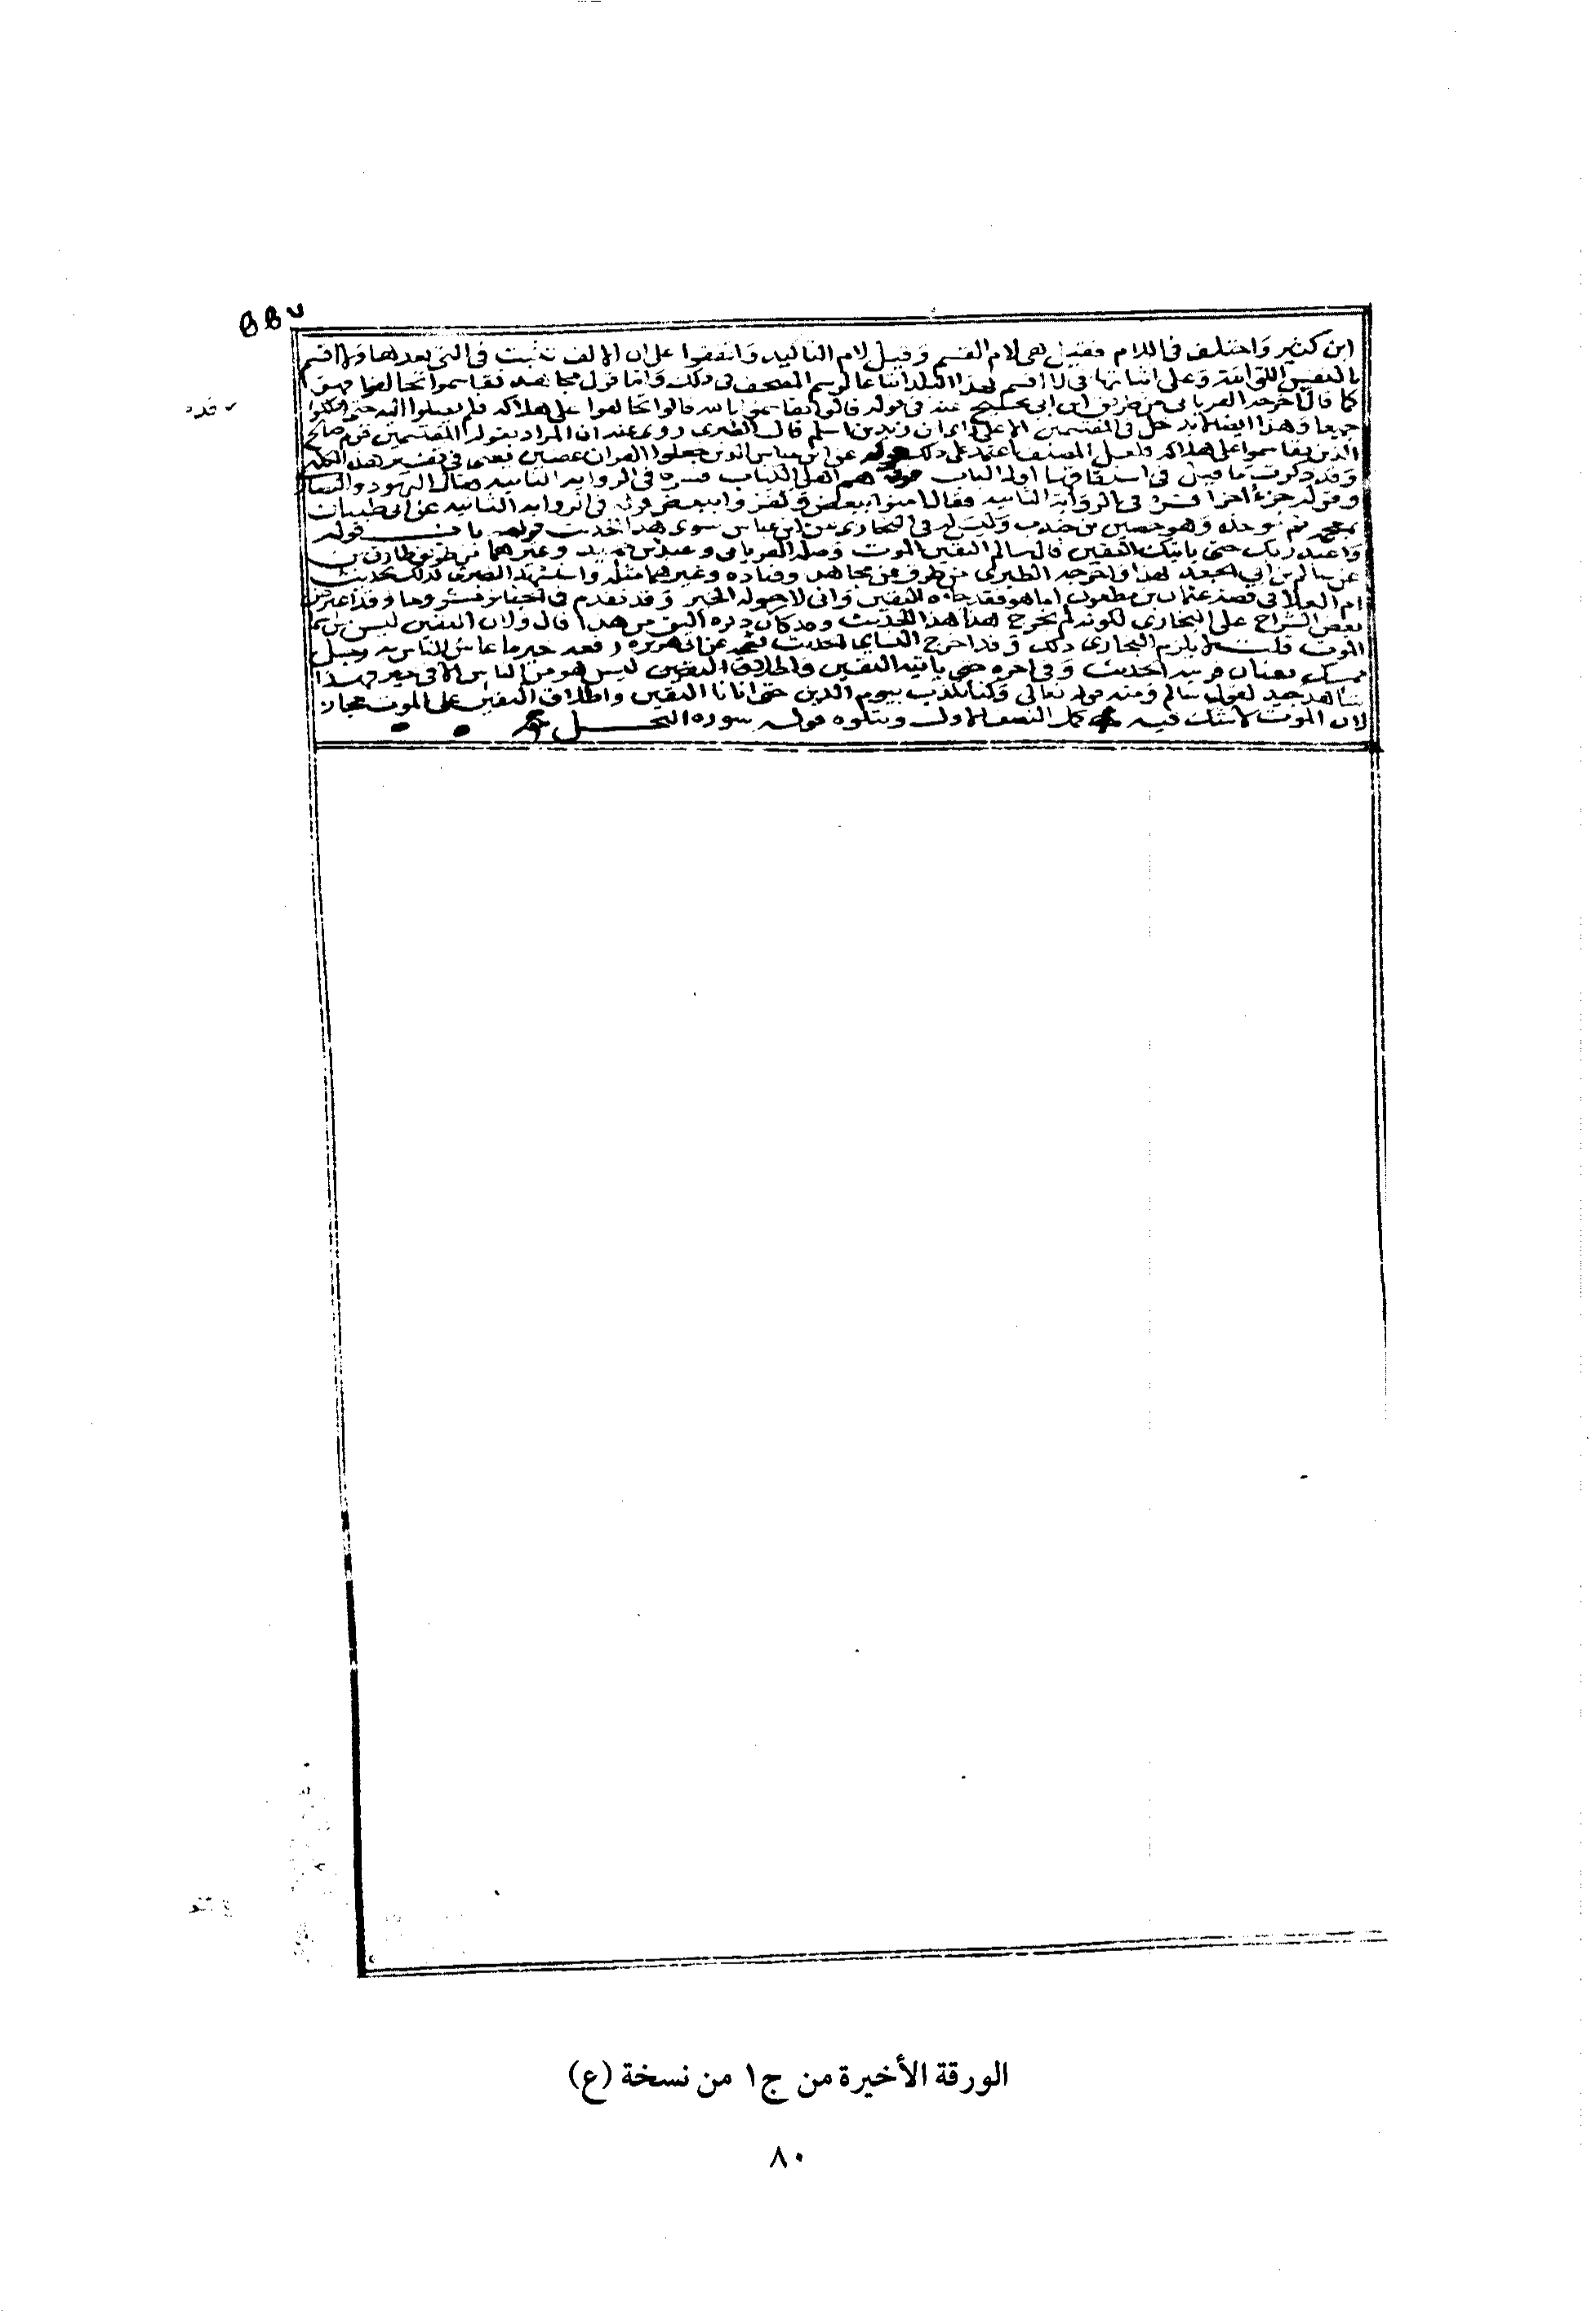 ابن كثير واختلف في اللام فقيل هي لام القسم وقيل لام التاكيد واتفقوا على ان الالف تثبت في التي بعدها ولا اقسم
بالنفس اللوامة وعلى اثباتها في لا اقسم بهذا البلد اتباعا لرسم المصحف في ذلك واما قول مجاهد تقاسموا تحالفوا فهو
كما قال اخرجه الفريابي من طريق ابن ابي نجيح عنه في قوله قالوا تقاسموا بالله قالوا تحالفوا على هلاكه فلم يصلوا اليه حتى هلكوا
جميعا وهذا ايضا لا يدخل في المقتسمين الا على راي ابن زيد بن اسلم قال الطبري روى عنه ان المراد بقوله المقتسمين قوم صالح
الذين تقاسموا على هلاكه ولعل المصنف اعتمد على ذلك قوله عن ابن عباس الذين جعلوا القران عضين يعني في تفسير هذه الكلمة
وقد ذكرت ما قيل في اشتقاقها اول الباب قوله هم اهل الكتاب فسره في الرواية الثانية فقال اليهود والنصارى
وقوله جزءوه اجزا فسره في الرواية الثانية فقال امنوا ببعض وكفروا ببعض قوله في الرواية الثانية عن ابي ظبيان
بمعجمة ثم موحدة وهو حصين بن جندب وليس له في البخاري عن ابن عباس سوى هذا الحديث قوله باب قوله
واعبد ربك حتى ياتيك اليقين قال سالم اليقين الموت وصله الفريابي وعبد بن حميد وغيرهما من طريق طارق بن
عن سالم بن ابي الجعد بهذا واخرجه الطبري من طرق عن مجاهد وقتاده وغيرهما مثله واستشهد الطبري لذلك بحديث
ام العلا في قصة عثمان بن مظعون اما هو فقد جاءه اليقين واني لارجو له الخير وقد تقدم في الجنائز مشروحا وقد اعترض
بعض الشراح على البخاري لكونه لم يخرج هنا هذا الحديث وقد كان ذكره اليق من هذا قال ولان اليقين ليس من
الموت قلت لا يلزم البخاري ذلك وقد اخرج النسائي حديث عن ابي هريره رفعه خير ما عاش الناس به رجل
ممسك بعنان فرسه الحديث وفي اخره حتى ياتيه اليقين ليس هو من الناس الا في خير فهذا
شاهد جيد لقول سالم ومنه قوله تعالى وكنا نكذب بيوم الدين حتى اتانا اليقين واطلاق اليقين على الموت مجاز
لان الموت لا يشك فيه كمل النصف الاول ويتلوه قوله سورة النحل
الورقة الأخيرة من ج١ من نسخة (ع)
٨٠